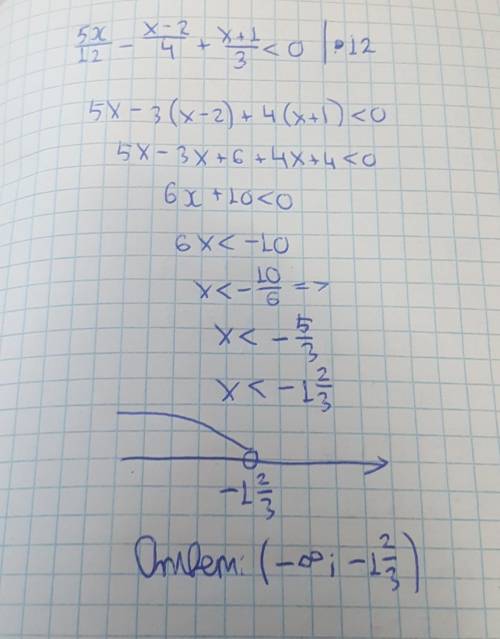 5x/12 − x−2/4 + x+1/3 < 0 | •12
5x − 3(x−2) + 4(x+1) < 0
5x − 3x + 6 + 4x + 4 < 0
6x + 10 < 0
6x < −10
x < − 10/6 =>
x < − 5/3
x < −1 2/3
−1 2/3
Ответ: (−∞; −1 2/3)